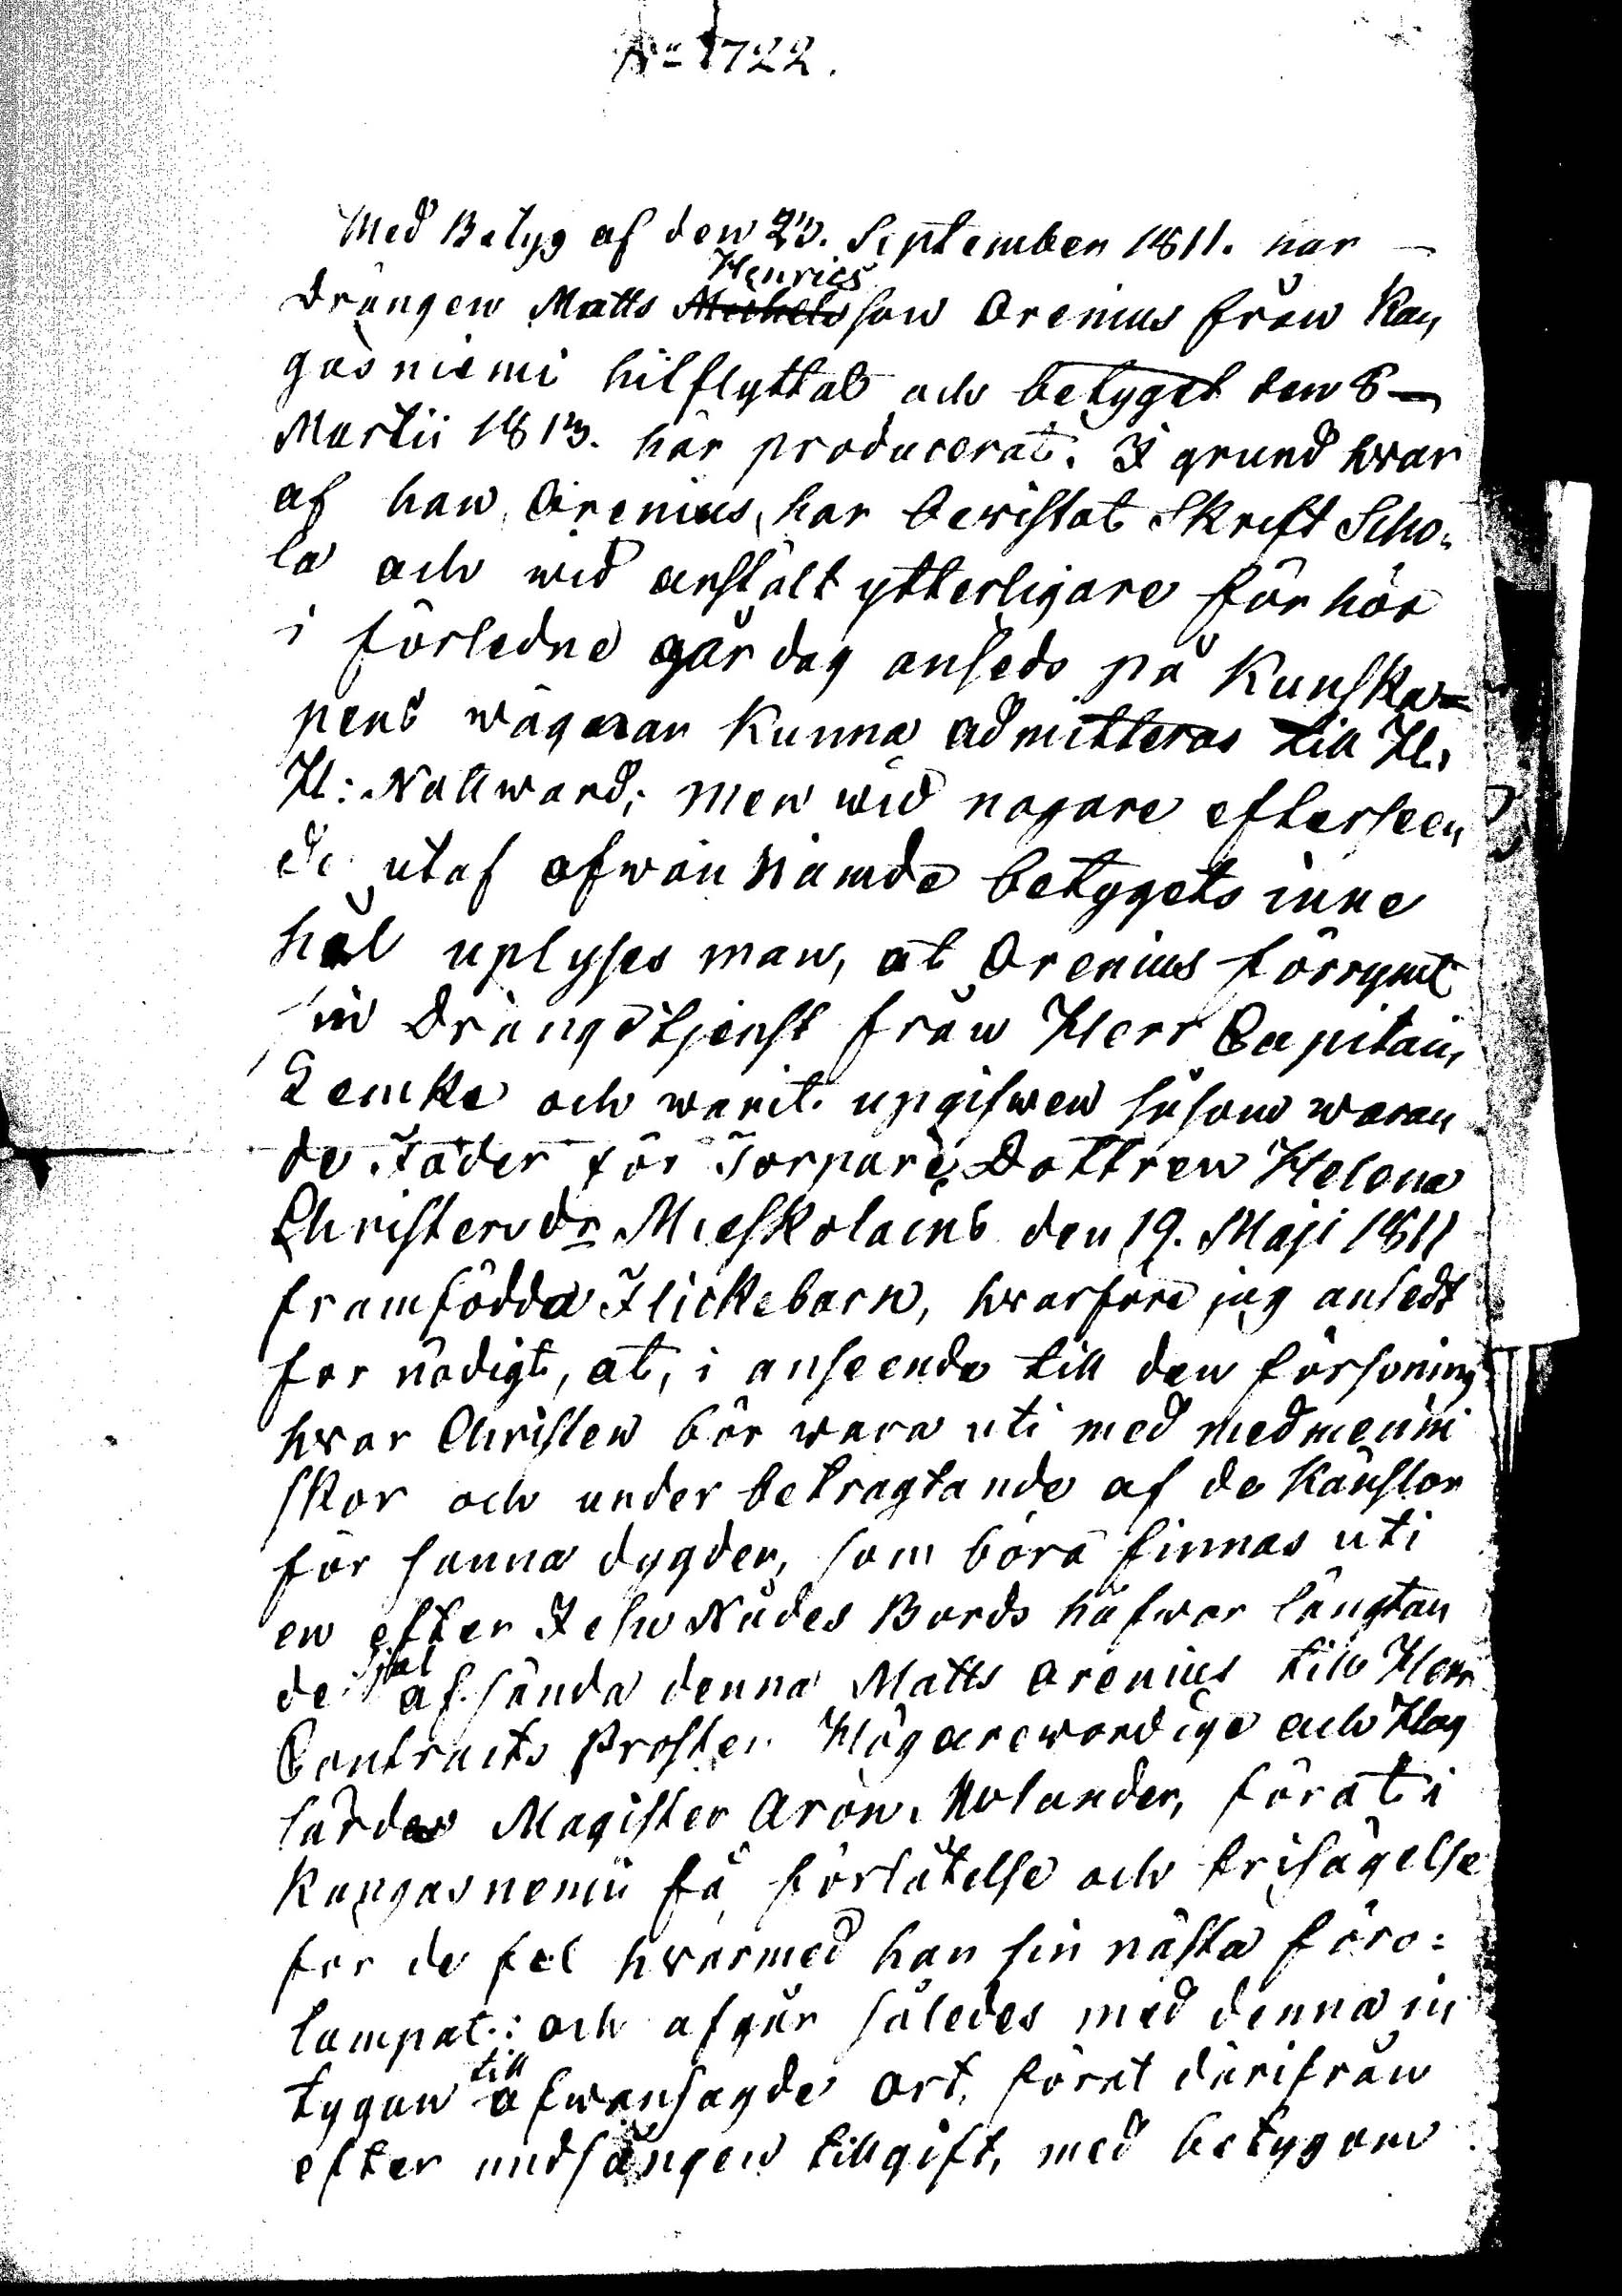 No 1722.
Med Betyg af den 23. September 1811. har
Drängen Matts Henrics
son Orenius från Kan,
gasniemi hitflyttat och betyget den 8
Martii 1813. här producerat. I grund hvar
af han, Orenius, har bevistat Skrift Scho-
la och wid anstält ytterligare förhör
i förledne går dag anseds på Kunska-
pens wägnar kunna admitteras till H.
H: Nattward; men wid nogare efterseen,
de utaf ofwan nämde betygets inne
hål uplyses man, at Orenius förrymt
sin Drängetjenst från Herr Capitain,
Lemke och warit upgifwen såsom waran
de Fader för Torpare Dottren Helena
Christersdr Mieskolains den 19. Maji 1811
framfödda Flickebarn, hvarföre jag ansedt
för nödigt, at, i anseende till den försoning
hvar Christen bör wara uti med medmenni
skor och under betragtande af de känslor
för sanna dygder, som böra finnas uti
en efter Jesu Nådes Bords håfwor längtan
de Själ afsända denna Matts Orenius till Herr
Contracts Prosten Högarewördige och Hög
lärde Magister Aron Molander, för at i
Kangasnemi få förlåtelse och frisägelse
för de fel hvarmed han sin nästa föro=
lämpat: och afgår således med denna in
tygan till ofwansagde ort, för at därifrån
efter undfången tillgift, med betygom